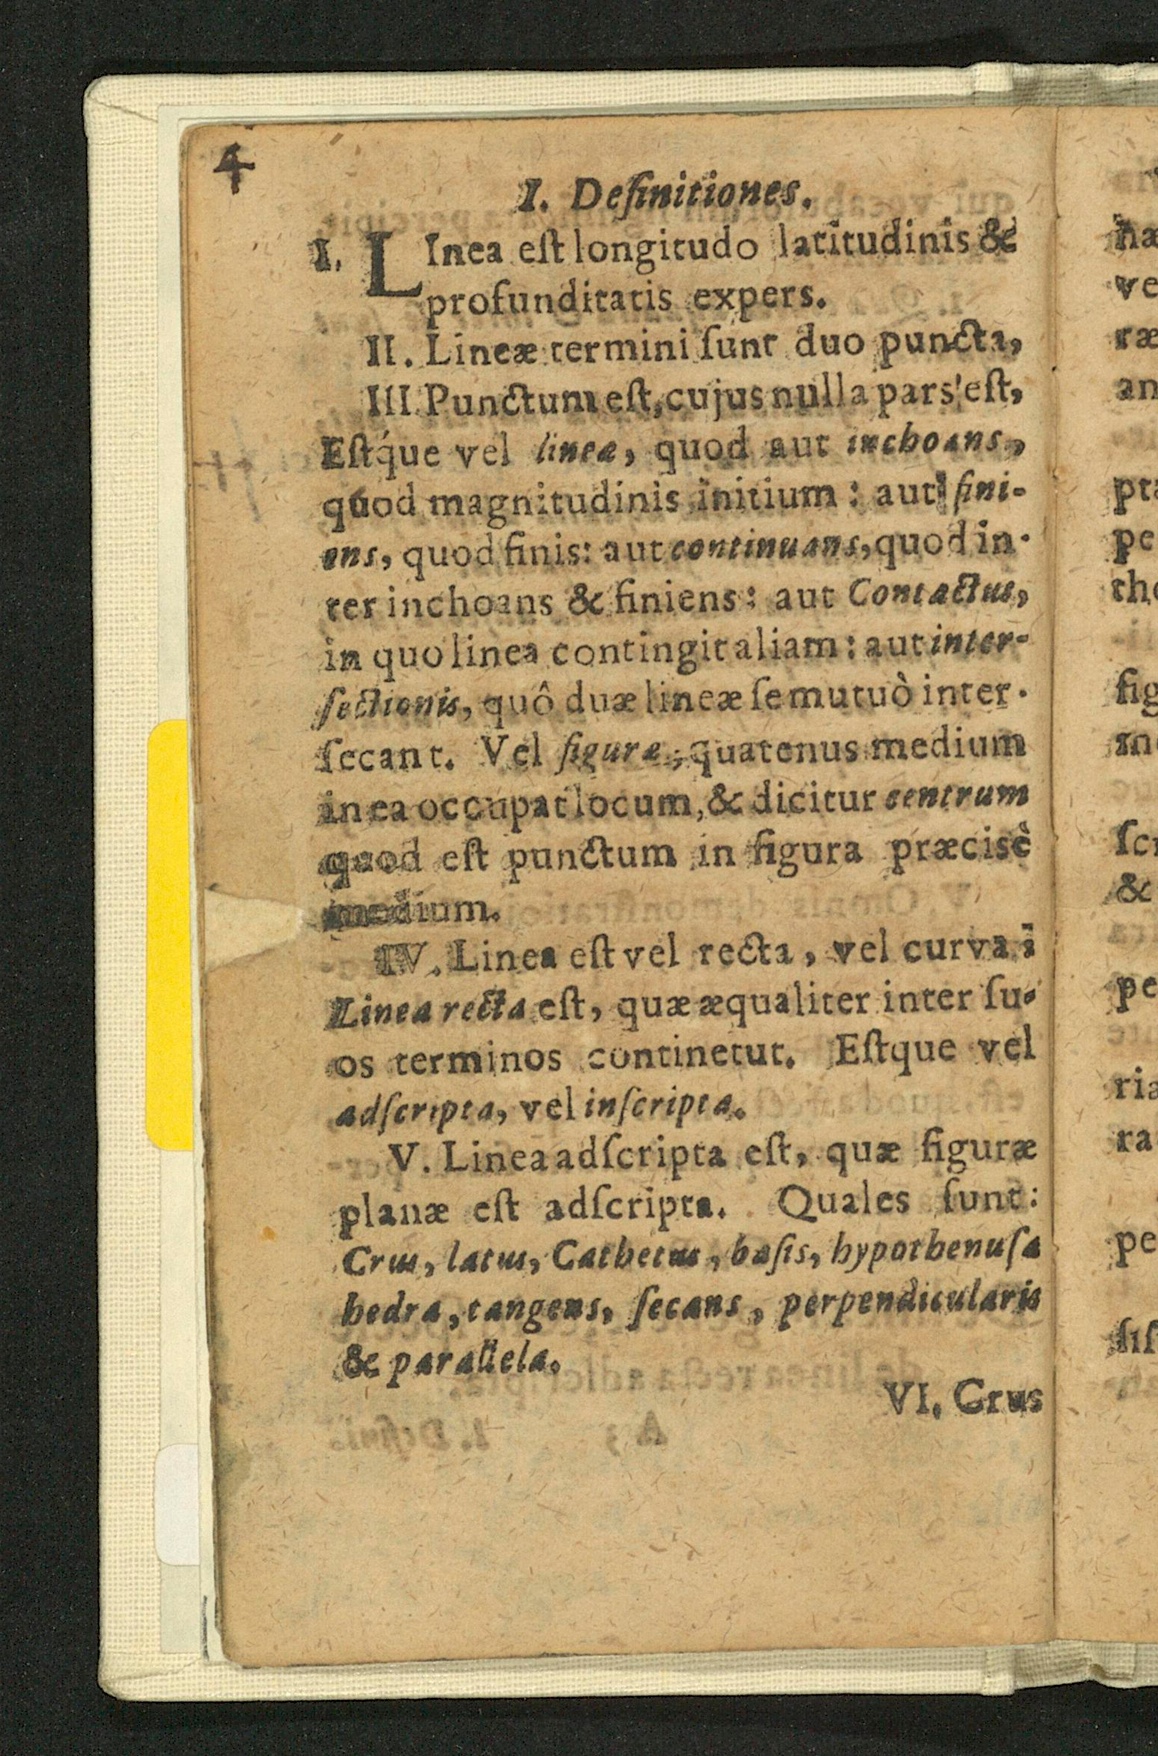 4
I. Definitiones.
I. Linea eſt longitudo latitudinis &
profunditatis expers.
II. Lineæ termini ſunt duo puncta,
III. Punctum eſt, cujus nulla pars eſt,
Eſtq́ue vel lineæ, quod aut inchoans,
quod magnitudinis initium: aut fini-
ens, quod finis: aut continuans, quod in-
ter inchoans & finiens: aut Contactus,
in quo linea contingit aliam: aut inter-
ſectionis, quô duæ lineæ ſe mutuò inter-
ſecant. Vel figuræ, quatenus medium
in ea occupat locum, & dicitur centrum
quod eſt punctum in figura præcisè
medium.
IV. Linea eſt vel recta, vel curva:
Linea recta eſt, quæ æqualiter inter ſu-
os terminos continetut. Eſtque vel
adſcripta, vel inſcripta.
V. Linea adſcripta eſt, quæ figuræ
planæ eſt adſcripta. Quales ſunt:
Crus, latus, Cathetus, baſis, hypothenuſa
hedra, tangens, ſecans, perpendicularis
& parallela.
VI. Crus